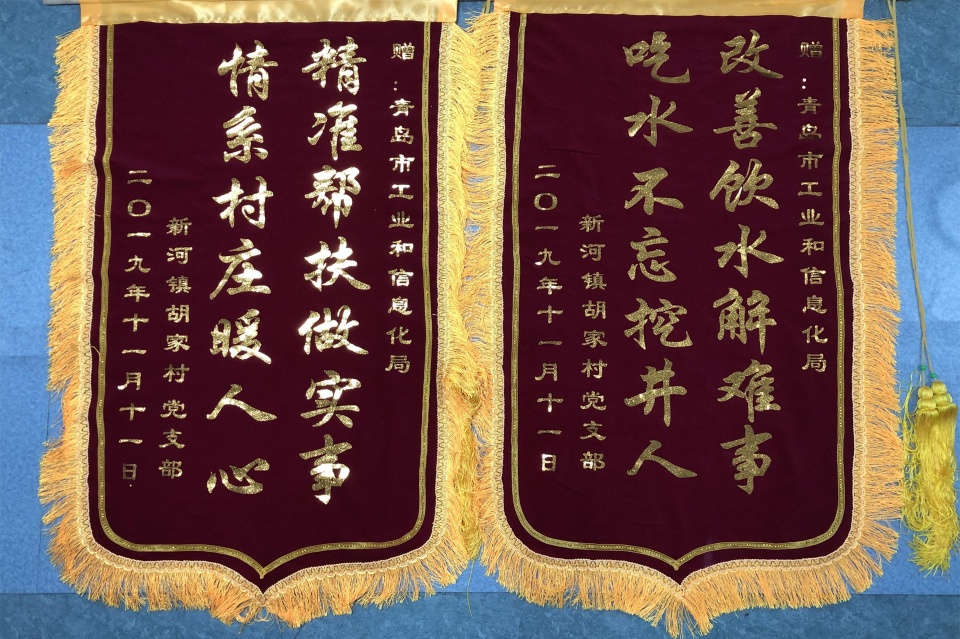 赠：青岛市工业和信息化局
改善饮水解难事
吃水不忘挖井人
新河镇胡家村党支部
二〇一九年十一月十一日
赠：青岛市工业和信息化局
精准帮扶做实事
情系村庄暖人心
新河镇胡家村党支部
二〇一九年十一月十一日